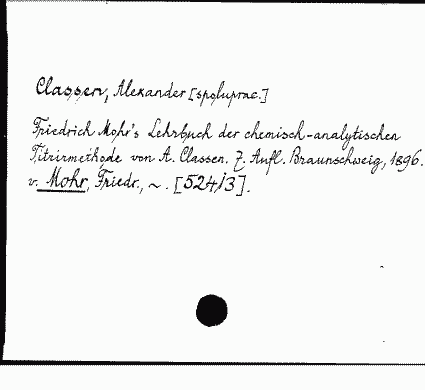 Classen, Alexander [spoluprac.]
Friedrich Mohr's Lehrbuch der chemisch-analytischen
Titrirmethode von A. Classen. 7. Aufl. Braunschweig, 1896.
v. Mohr, Friedr., ~. [524/3].